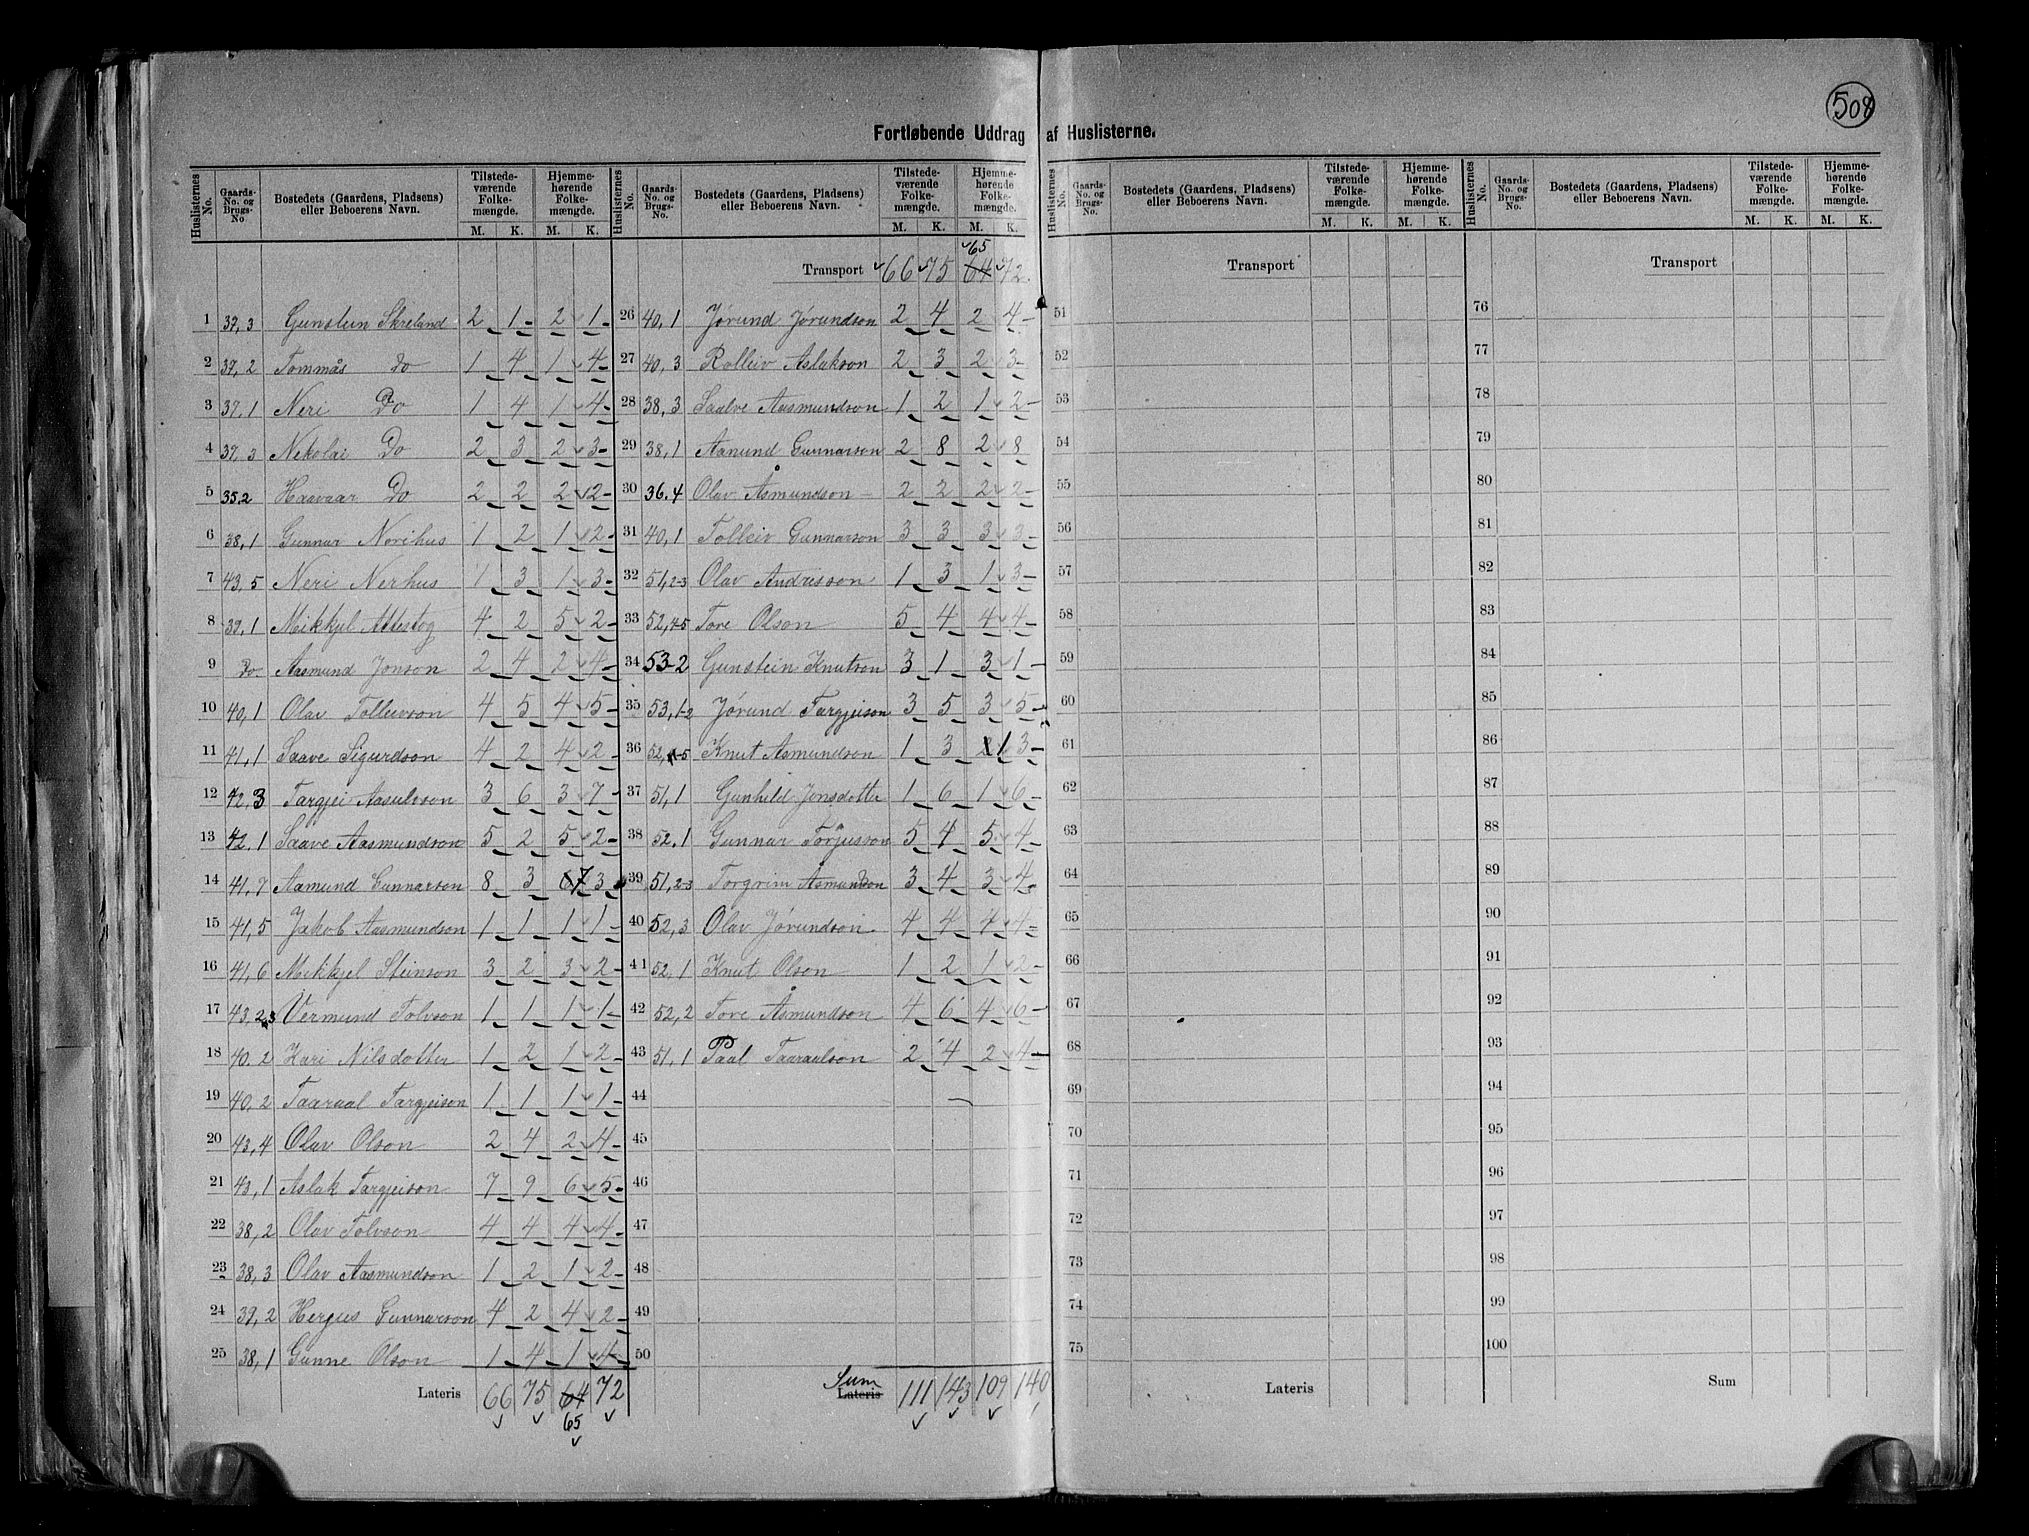 508
Fortløbende Uddrag af Huslisternes.
Huslisternes No. | Gaards-No. og Brugs-No | Bostedets (Gaardens, Pladsens) eller Beboerens Navn. | Tilstedeværende Folkemængde. M. K. | Hjemmehørende Folkemængde. M. K.
1 37,3 Gunstein Skreland 2 1 2 1
2 37,2 Tommås do 1 4 1 4
3 37,1 Neri Do 1 4 1 4
4 37,3 Nekolai Do 2 3 2 3
5 35,2 Haavaar Do 2 2 2 2
6 38,1 Gunnar Norihus 1 2 1 2
7 43,5 Neri Nerhus 1 3 1 3
8 39,1 Mikkjel Attestog 4 2 5 2
9 do Aasmund Jonson 2 4 2 4
10 40,1 Olav Tolleivson 4 5 4 5
11 41,1 Saave Sigurdson 4 2 4 2
12 42,3 Targjei Aasulvson 3 6 3 7
13 42,1 Saave Aasmundson 5 2 5 2
14 41,7 Aamund Gunnarson 8 3 7 3
15 41,5 Jakob Aasmundson 1 1 1 1
16 41,6 Mikkjel Steinson 3 2 3 2
17 43,2,3 Vermund Tolvson 1 1 1 1
18 40,2 Kari Nilsdotter 1 2 1 2
19 40,2 Taaraal Targjeison 1 1 1 1
20 43,4 Olav Olson 2 4 2 4
21 43,1 Aslak Targjeison 7 9 6 5
22 38,2 Olav Tolvson 4 4 4 4
23 38,3 Olav Aasmundson 1 2 1 2
24 39,2 Hergus Gunnarson 4 2 4 2
25 38,1 Gunne Olson 1 4 1 4
Lateris 66 75 64 72
65
Huslisternes No. | Gaards-No. og Brugs-No. | Bostedets (Gaardens, Pladsens) eller Beboerens Navn. | Tilstedeværende Folkemængde. M. K. | Hjemmehørende Folkemængde. M. K.
65
Transport 66 75 64 72
26 40,1 Jørund Jørundson 2 4 2 4
27 40,3 Rolleiv Aslakson 2 3 2 3
28 38,3 Saalve Aasmundson 1 2 1 2
29 38,1 Aamund Gunnarson 2 8 2 8
30 36.4 Olav Åsmundson 2 2 2 2
31 40,1 Tolleiv Gunnarson 3 3 3 3
32 51,2-3 Olav Andrisson 1 3 1 3
33 52,4-5 Tore Olson 5 4 4 4
34 53-2 Gunstein Knutson 3 1 3 1
35 53,1-2 Jørund Targjeison 3 5 3 5
36 Knut Asmundson 1 3 1 3
37 51,1 Gunhild Jonsdotter 1 6 1 6
38 52.1 Gunnar Torjusson 5 4 5 4
39 51,2-3 Torgrim Åsmundson 3 4 3 4
40 52,3 Olav Jørundson 4 4 4 4
41 52,1 Knut Olson 1 2 1 2
42 52,2 Tore Åsmundson 4 6 4 6
43 51,1 Paal Taaraalson 2 4 2 4
44
45
46
47
48
49
50
Sum
Lateris 111 143 109 140
Huslisternes No. | Gaards-No. og Brugs-No. | Bostedets (Gaardens, Pladsens) eller Beboerens Navn. | Tilstedeværende Folkemængde. M. K. | Hjemmehørende Folkemængde. M. K.
Transport
51
52
53
54
55
56
57
58
59
60
61
62
63
64
65
66
67
68
69
70
71
72
73
74
75
Lateris
Huslisternes No. | Gaards-No. og Brugs-No. | Bostedets (Gaardens, Pladsens) eller Beboerens Navn. | Tilstedeværende Folkemængde. M. K. | Hjemmehørende Folkemængde. M. K.
Transport
76
77
78
79
80
81
82
83
84
85
86
87
88
89
90
91
92
93
94
95
96
97
98
99
100
Sum